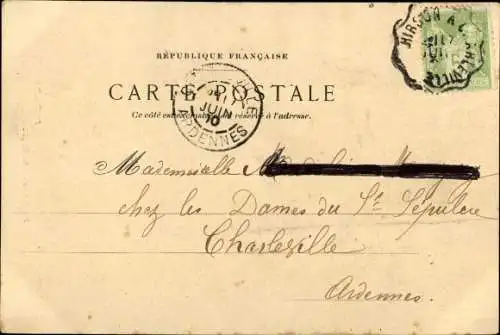 HIRSON A
RÉPUBLIQUE FRANÇAISE
CARTE POSTALE
Ce côté est exclusivement réservé à l'adresse.
JUIN
ARDENNES
Mademoiselle
chez les Dames du St Sépulcre
Charleville
Ardennes.